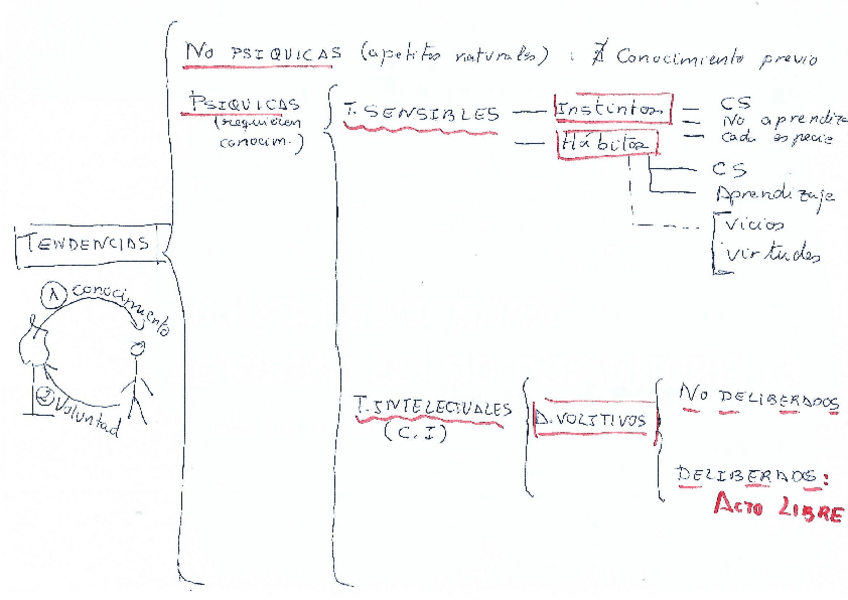 No PSIQUICAS (apetitos naturales) : ∄ Conocimiento previo
PSIQUICAS
(requieren
conocim.)
T. SENSIBLES — Instintos — CS
— No aprendiza
— cada especie
— Hábitos
— CS
Aprendizaje
Vicios
virtudes
TENDENCIAS
1 conocimiento
2 Voluntad
T. INTELECTUALES
(C. I)
A. VOLITIVOS
No DELIBERADOS
DELIBERADOS:
ACTO LIBRE